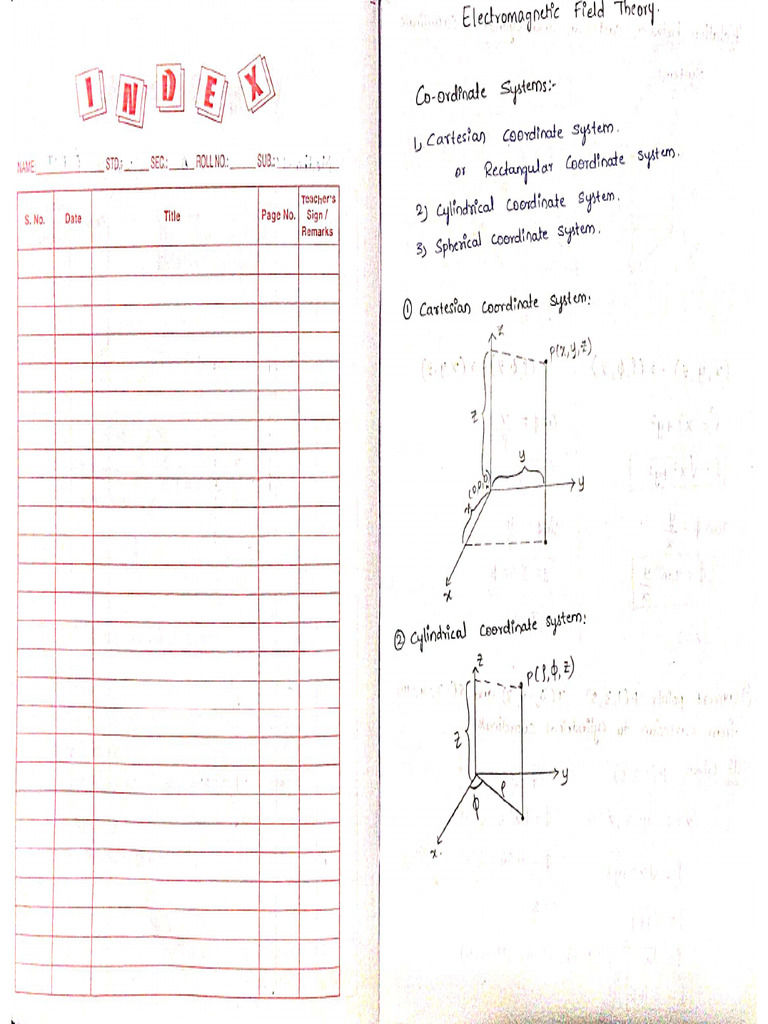 INDEX
NAME STD.: SEC.: ROLL NO.: SUB.:
S. No. Date Title Page No. Teacher's Sign / Remarks
Electromagnetic Field Theory.
Co-ordinate Systems:-
1) Cartesian Coordinate System.
or Rectangular Coordinate System.
2) Cylindrical Coordinate System.
3) Spherical Coordinate System.
① Cartesian Coordinate System:
z
P(x,y,z)
z
y
(0,0,0)
y
x
x
② Cylindrical Coordinate System:
z
P(ρ,ϕ,z)
z
y
ρ
ϕ
x.